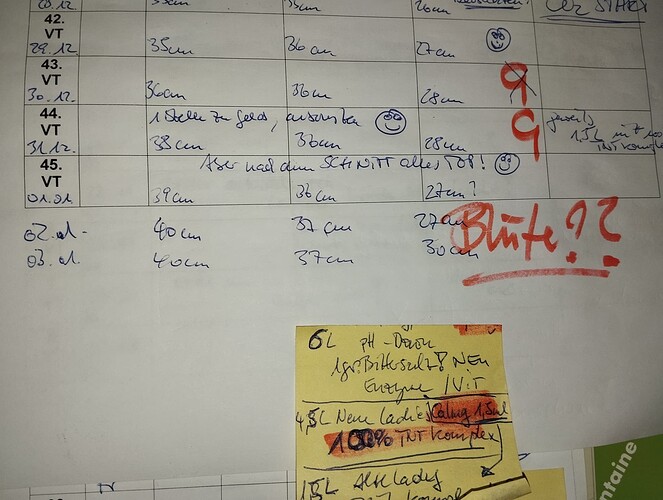 28.12. 33cm 35cm 26cm
42.
VT
29.12. 35cm 36cm 27cm
43.
VT
30.12. 36cm 36cm 28cm 9
44. 1 Stelle zu gelb, ansonsten
VT
31.12. 38cm 36cm 28cm 9 jeweils 1,5L mit 100% TNT Komplex
45. Aber nach dem SCHNITT alles TOP!
VT
01.01. 39cm 36cm 27cm?
02.01. 40cm 37cm 27cm
03.01. 40cm 37cm 30cm
Blüte!?
6L pH-Down
1gr. Bittersalz! NEU
Enzyme / ViT
4,5L Neue Ladies Calmag 1,5ml
100% TNT Komplex
1,5L Alte Lady
TNT Komplex
ntaine